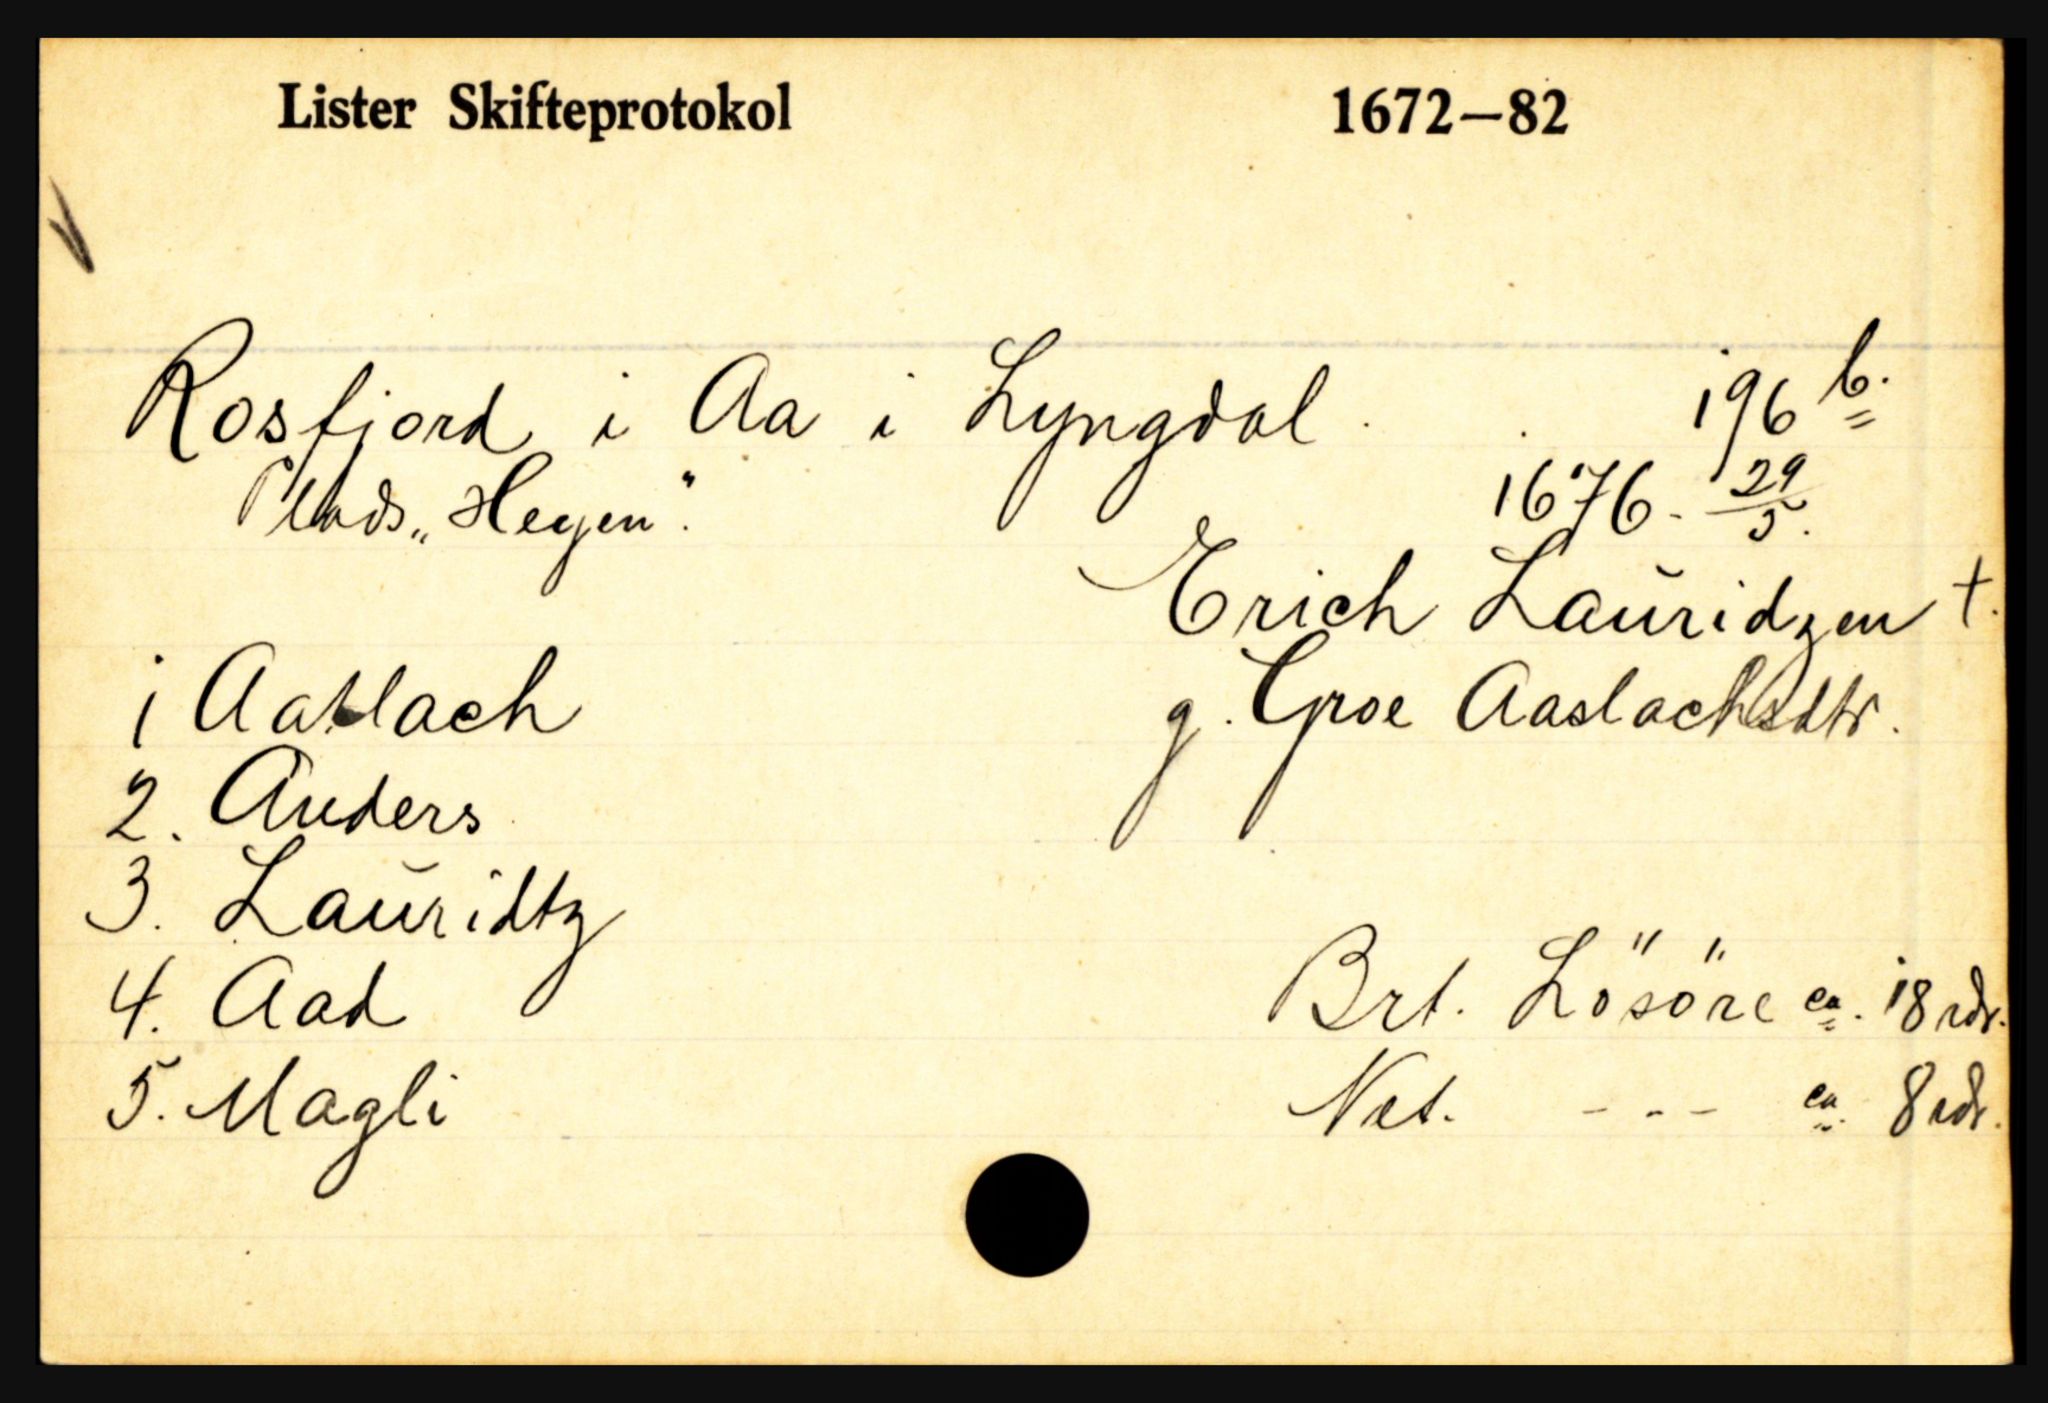 Lister Skifteprotokol 1672—82
Rosfjord i Aa i Lyngdal. 196 b.
Plads „Heyen". 1676. 29/5.
Erich Lauridzen †.
1 Aaslach g. Groe Aaslachsdtr.
2. Anders
3. Lauridtz
4. Aad Brt. Lösöre ca. 18 rdr.
5. Magli Net. - - - ca. 8 rdr.